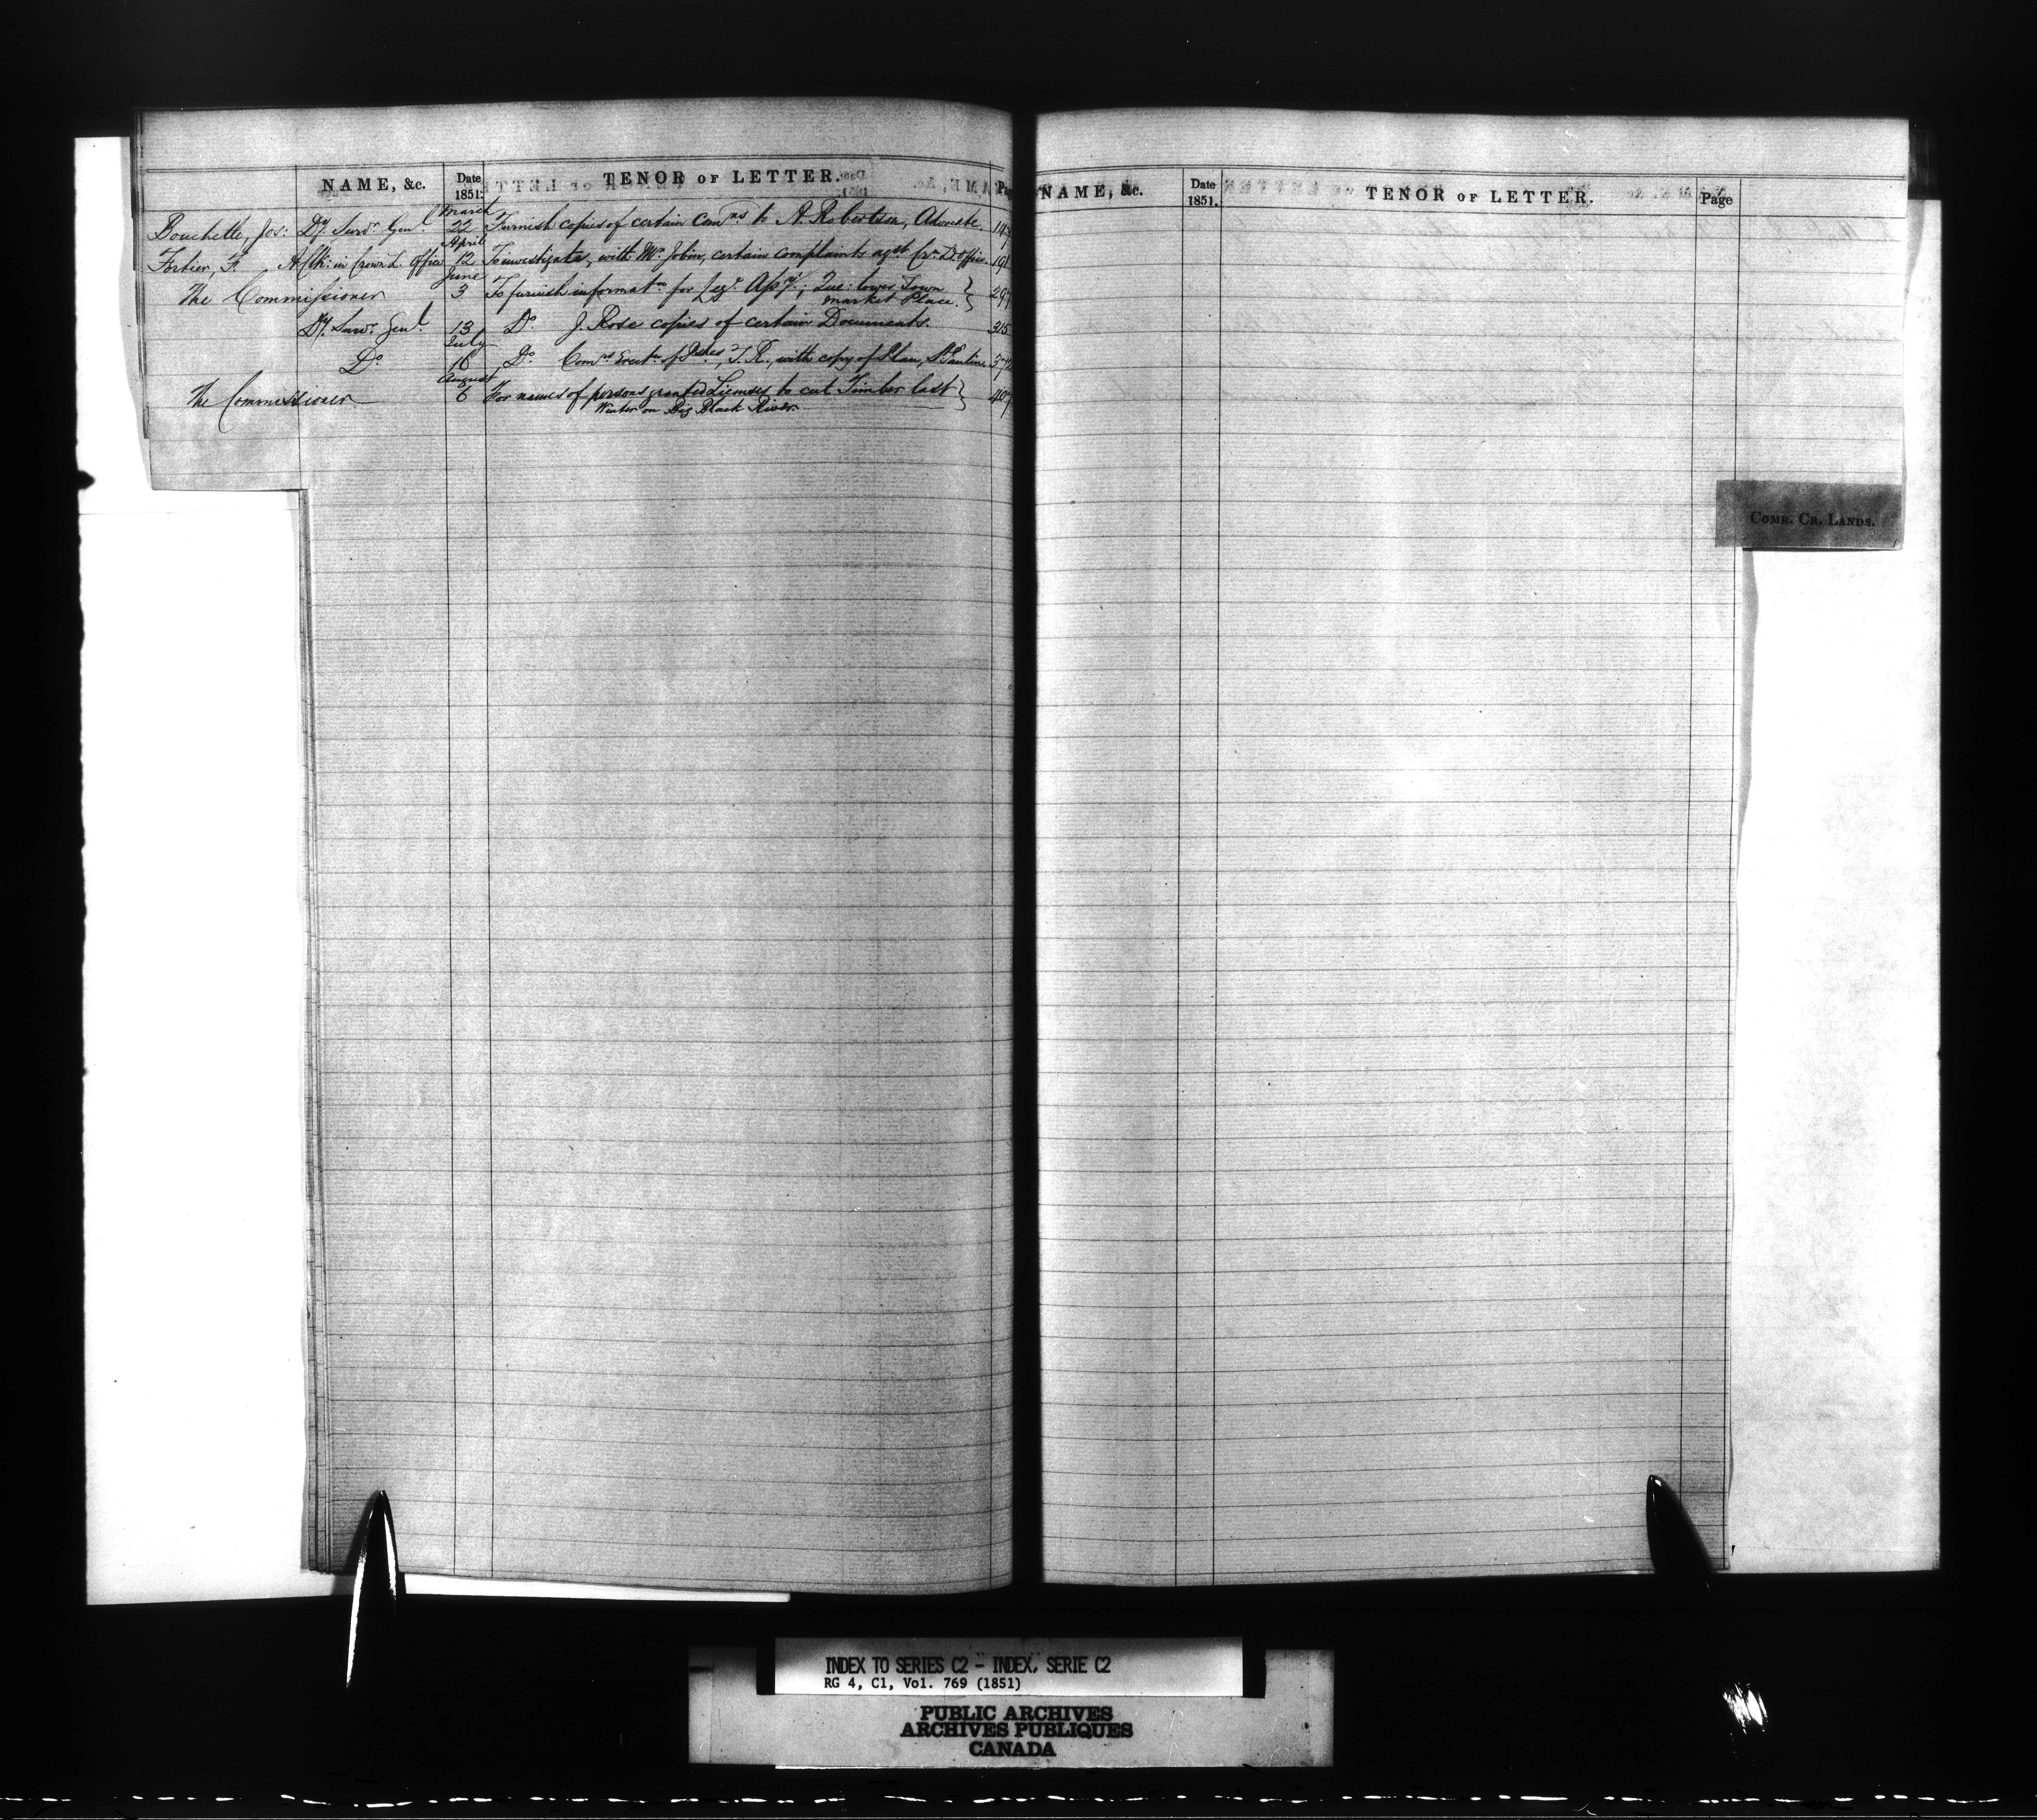 NAME, &c. Date 1851. TENOR OF LETTER. Page
March
Bouchette, Jos: Dy. Survr. Genl. 22 Furnish copies of certain Comns to A. Robertson, Advocate. 147
April
Fortier, F. A Clk: in Crown L. Office 12 To investigate, with Mr. Jobin, certain complaints agst Cr. Ld. Office 191
June
The Commissioner 3 To furnish informatn for Leg. Assy.; Que: Lower Town 297
market Place.
Dy. Survr. Genl. 13 Do. J. Rose copies of certain Documents. 315
July
Do. 18 Do. Comrs Erectn of Pshes, T. R., with copy of Plan, St. Pauline
August
The Commissioner 6 For names of persons granted Licenses to cut Timber last 407
Winter on Big Black River.
NAME, &c. Date 1851. TENOR OF LETTER. Page
COMR. CR. LANDS.
INDEX TO SERIES C2 - INDEX, SERIE C2
RG 4, C1, Vol. 769 (1851)
PUBLIC ARCHIVES
ARCHIVES PUBLIQUES
CANADA